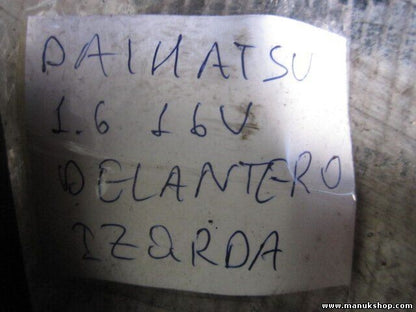 DAIHATSU
1.6 16V
DELANTERO
IZQRDA
www.manukshop.com